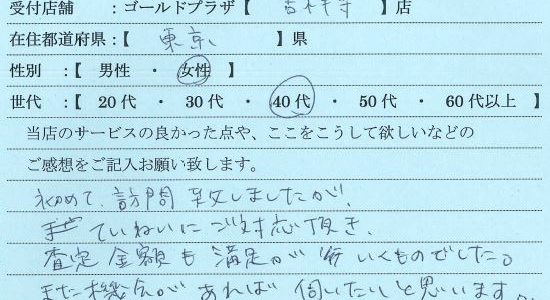 受付店舗 :ゴールドプラザ【 吉祥寺 】店
在住都道府県:【 東京 】県
性別 :【 男性 ・ 女性 】
世代 :【 20代 ・ 30代 ・ 40代 ・ 50代 ・ 60代以上 】
当店のサービスの良かった点や、ここをこうして欲しいなどの
ご感想をご記入お願い致します。
初めて、訪問致しましたが、
ていねいにご対応頂き、
査定金額も満足が行くものでした。
また機会があれば伺いたいと思います。